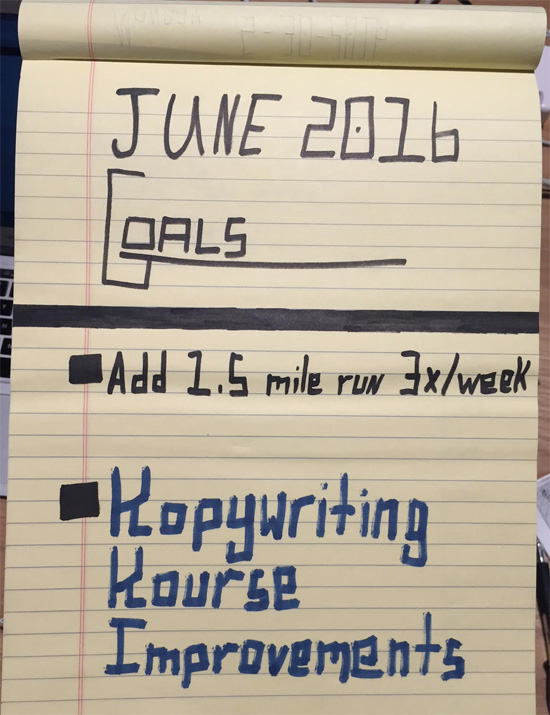 JUNE 2016
GOALS
Add 1.5 mile run 3x/week
Kopywriting
Kourse
Improvements